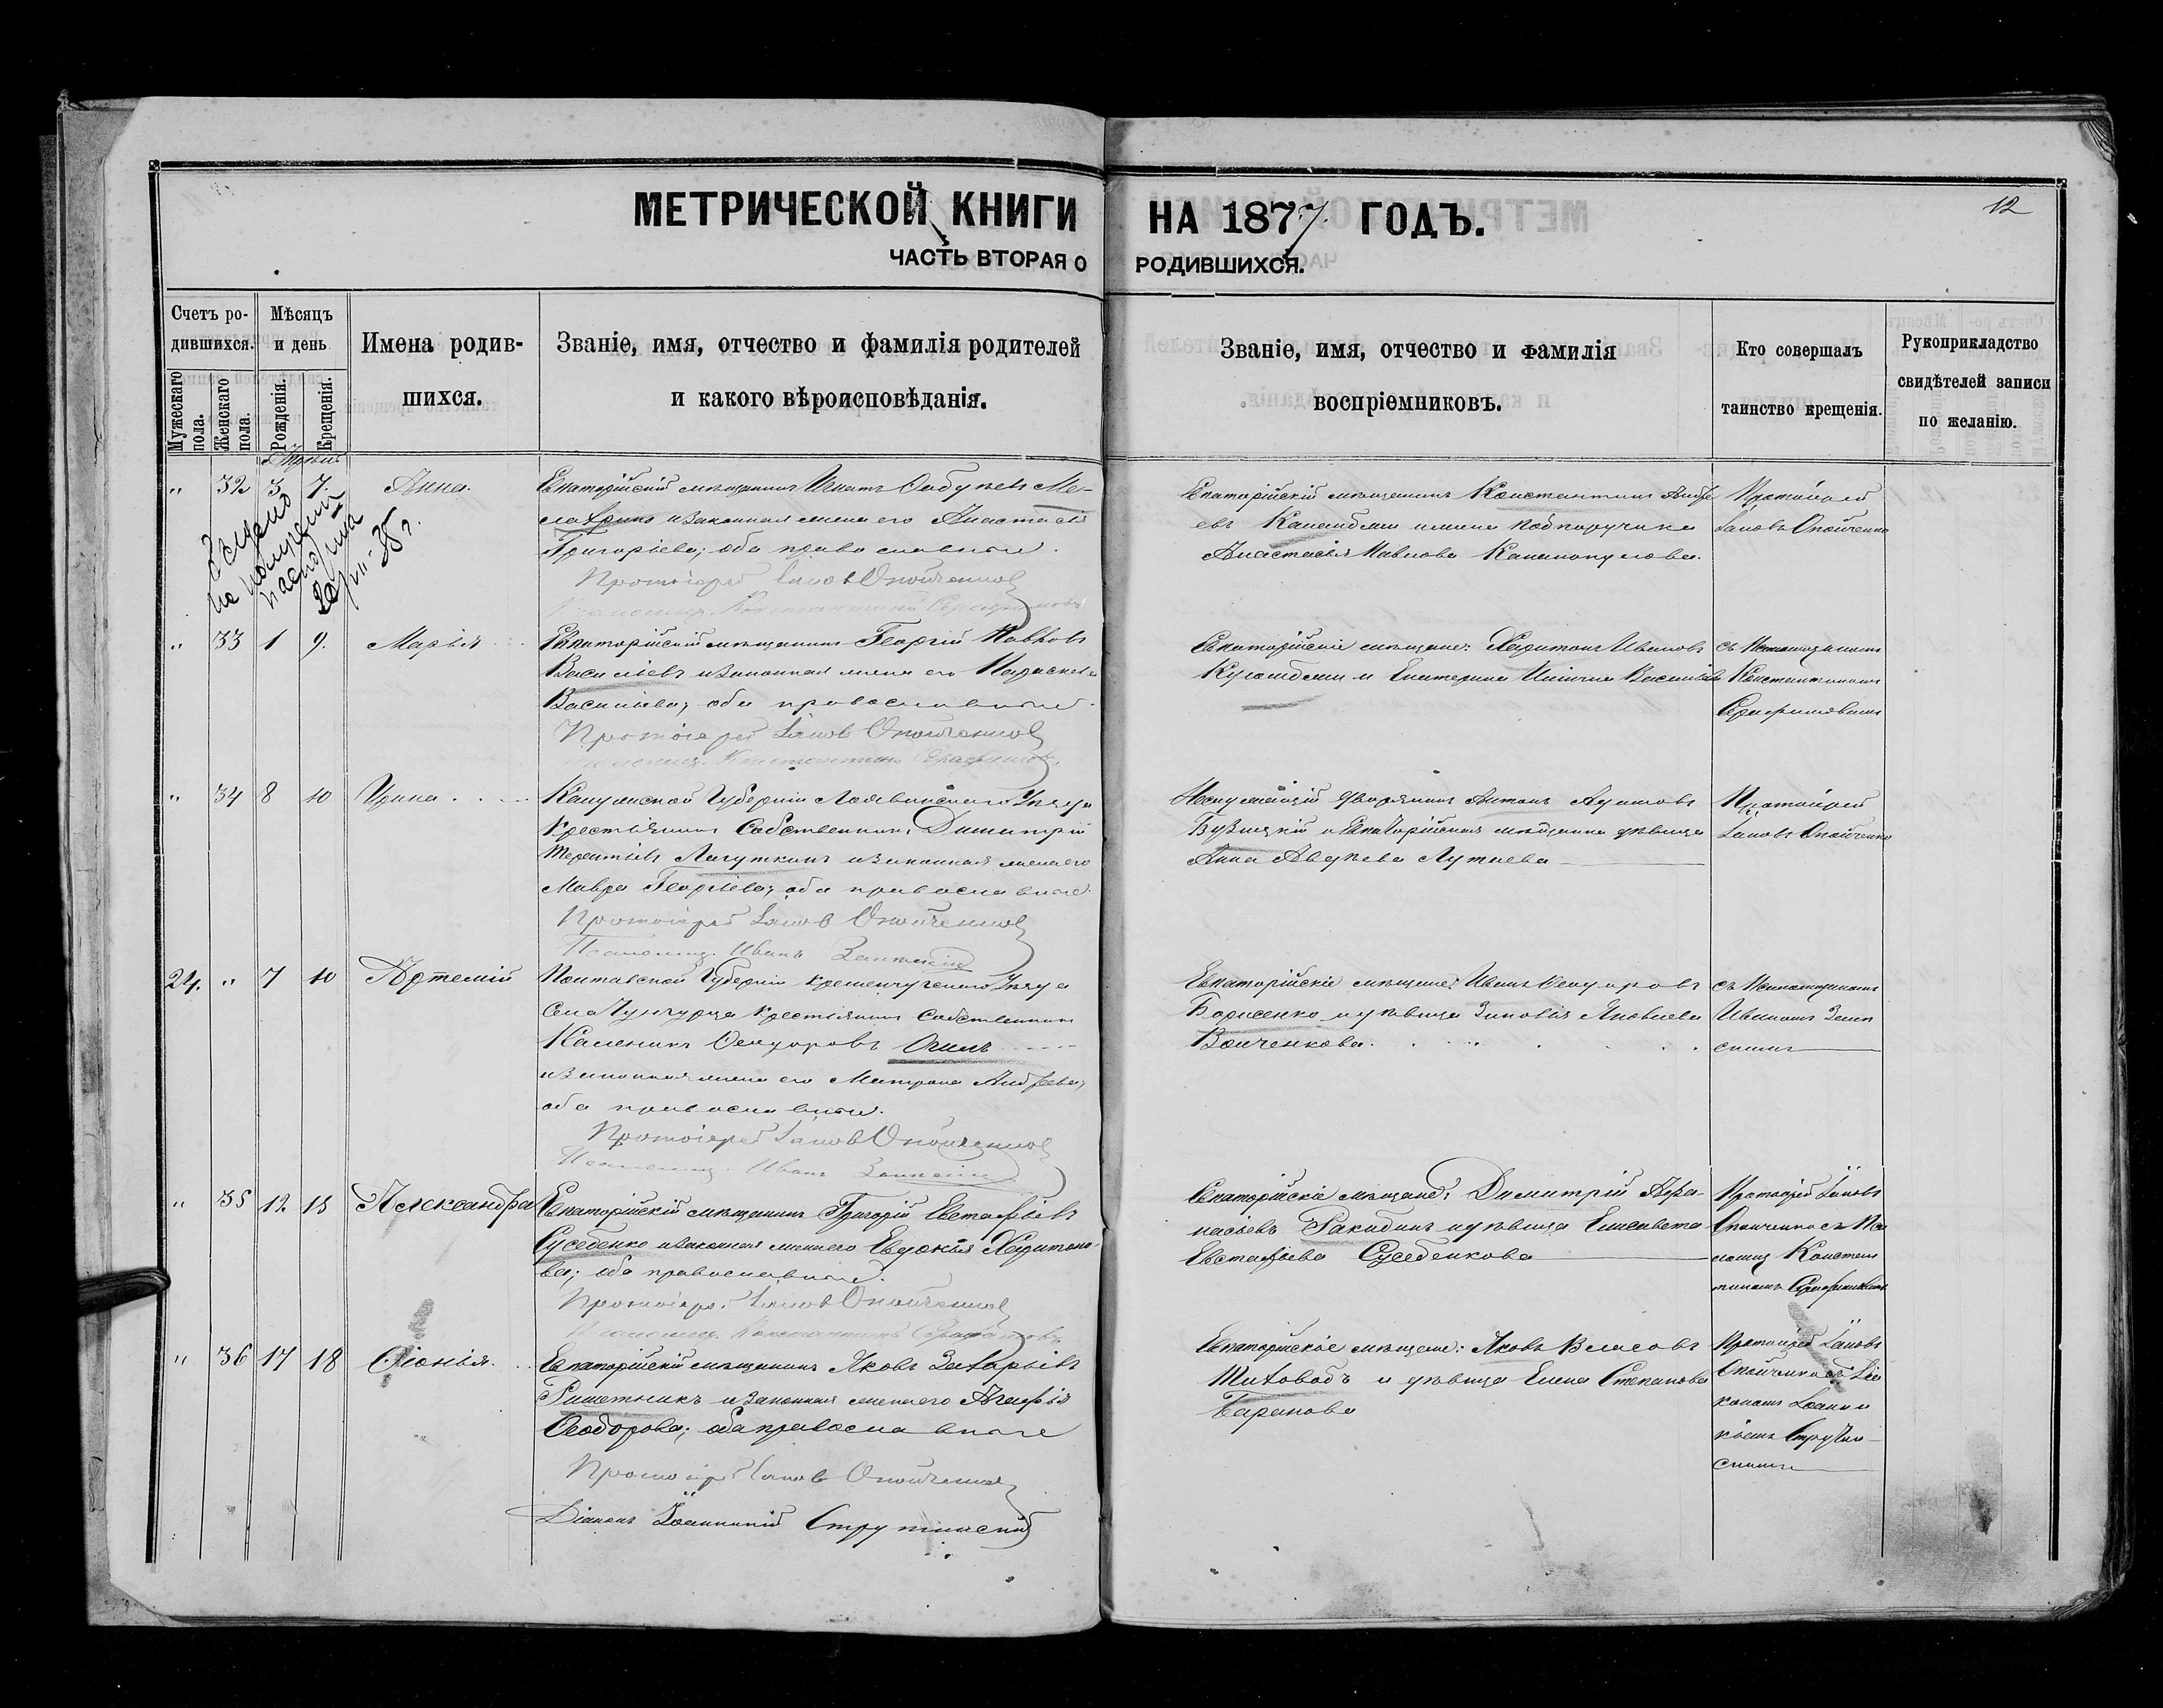 МЕТРИЧЕСКОЙ КНИГИ НА 1877 ГОДЪ.
12
ЧАСТЬ ВТОРАЯ О РОДИВШИХСЯ.
Счетъ ро-
дившихся.
Мужескаго пола.
Женскаго пола.
Мѣсяцъ
и день
Рожденія.
Крещенія.
Имена родив-
шихся.
Званіе, имя, отчество и фамилія родителей
и какого вѣроисповѣданія.
Званіе, имя, отчество и фамилія
воспріемниковъ.
Кто совершалъ
таинство крещенія.
Рукоприкладство
свидѣтелей записи
по желанію.
" 32 3 7. Анна.
Евпаторійскій мѣщанинъ Игнатъ
и законная жена его Анастасія
Григорьева; оба православные.
Протоіерей Іаковъ Опойченко
Псаломщ. Константинъ Серафимовъ
Евпаторійскій мѣщанинъ Константинъ Андре-
евъ и жена подпоручика
Анастасія Павлова
Протоіерей
Іаковъ Опойченко
Выдано
паспорта
" 33 1 9. Марья
Евпаторійскій мѣщанинъ Георгій Павловъ
Васильевъ и законная жена его Параскева
Васильева, оба православные.
Протоіерей Іаковъ Опойченко
Псаломщ. Константинъ Серафимовъ
Евпаторійскіе мѣщане: Харитонъ Ивановъ
и Екатерина Ильина Васильева
съ Псаломщикомъ
Константиномъ
Серафимовымъ
" 34 8 10 Ирина
Калужской Губерніи Уѣзда
Крестьянинъ Собственникъ Димитрій
Терентьевъ Лагуткинъ и законная жена его
Мавра Георгіева, оба православные.
Протоіерей Іаковъ Опойченко
Псаломщ. Иванъ
дворянинъ Антонъ
и Евпаторійская мѣщанка дѣвица
Анна Авдѣева
Протоіерей
Іаковъ Опойченко
24. " 7 10 Артемій
Полтавской Губерніи Кременчугскаго Уѣзда
Села Крестьянинъ Собственникъ
Каленикъ Ѳеодоровъ
и законная жена его Матрона Андреева,
оба православные.
Протоіерей Іаковъ Опойченко
Псаломщ. Иванъ
Евпаторійскіе мѣщане: Иванъ Ѳеодоровъ
Борисенко и дѣвица Зиновія Яковлева
Войченкова.
съ Псаломщикомъ
Иваномъ
" 35 12 13 Александра
Евпаторійскій мѣщанинъ Григорій Евстафьевъ
Суседенко и законная жена его Евдокія Харитоно-
ва; оба православные.
Протоіерей Іаковъ Опойченко
Псаломщ. Константинъ Серафимовъ
Евпаторійскіе мѣщане: Димитрій Афа-
насьевъ и дѣвица Елисавета
Евстафьева Суседенкова
Протоіерей Іаковъ
Опойченко съ Пса
ломщ. Констан
тиномъ Серафимовымъ
" 36 17 18 Ѳіонія.
Евпаторійскій мѣщанинъ Яковъ Захарьевъ
Решетникъ и законная жена его Агафія
Ѳеодорова; оба православные
Протоіерей Іаковъ Опойченко
Діаконъ Іоанникій Стружинскій
Евпаторійскіе мѣщане: Яковъ Власовъ
Титоводъ и дѣвица Елена Степанова
Баранова
Протоіерей Іаковъ
Опойченко съ Діа
кономъ Іоанни
кіемъ Стружин
скимъ